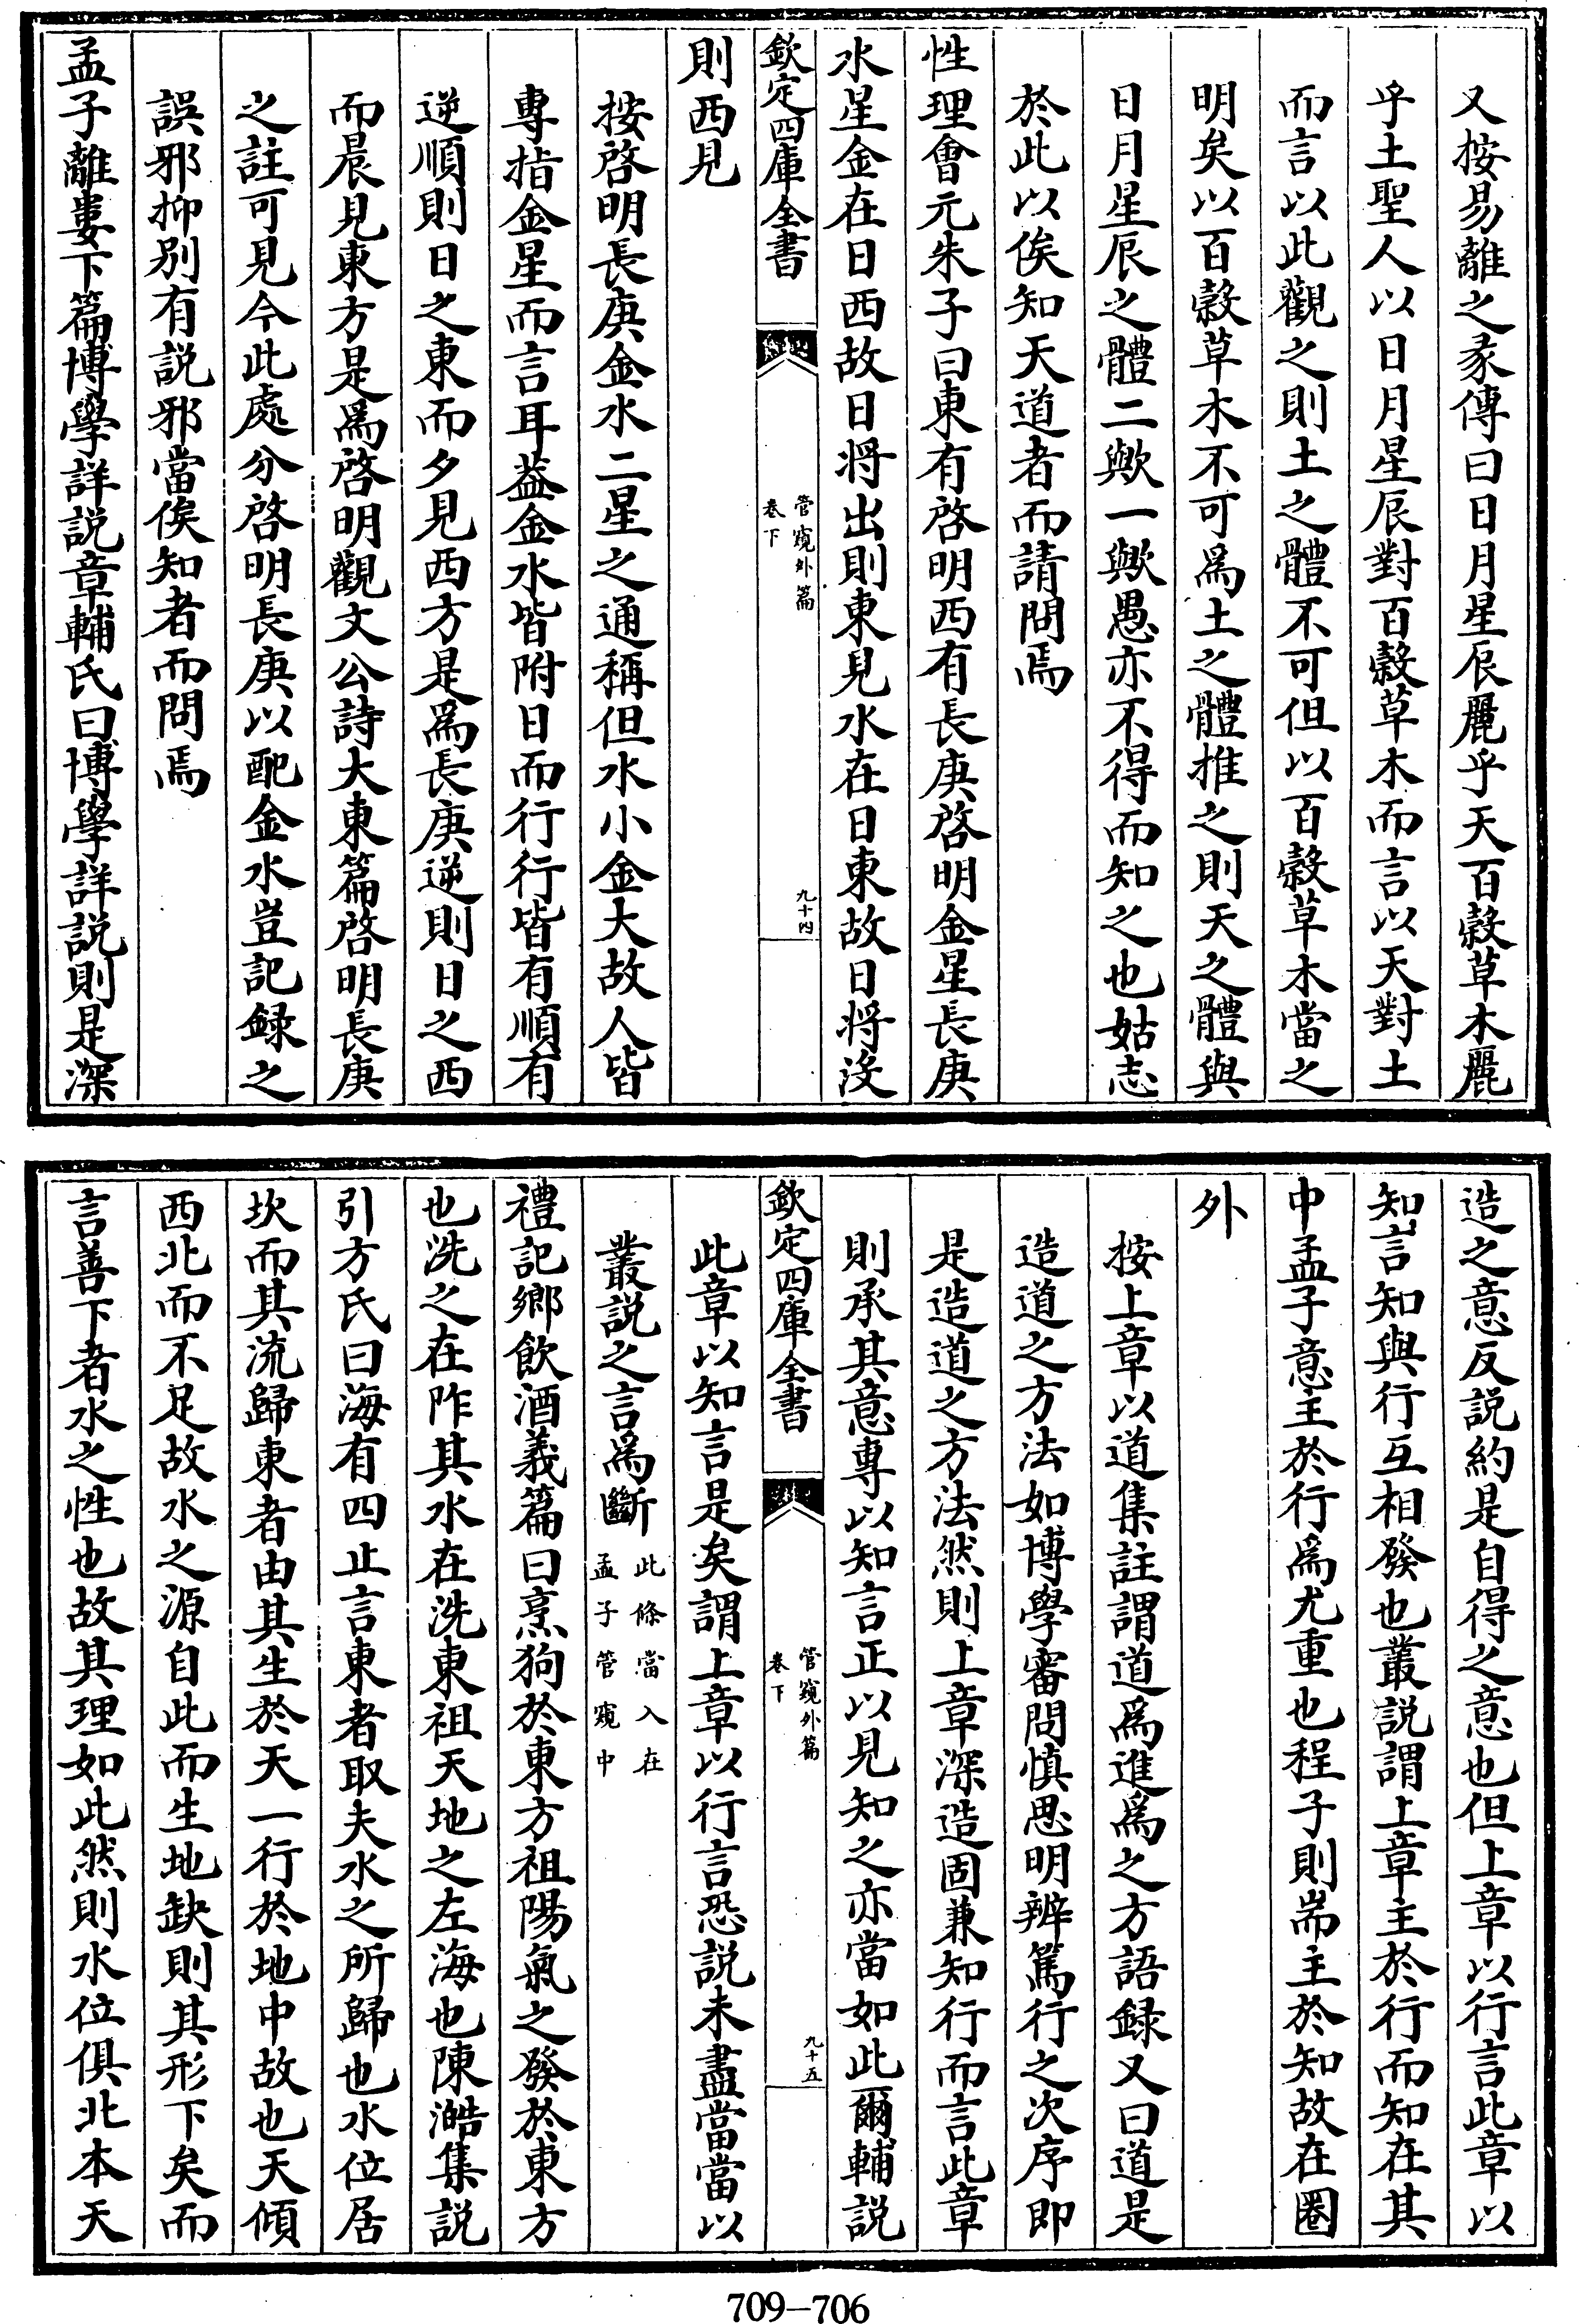 又按易離之彖傳曰日月星辰麗乎天百穀草木麗
乎土聖人以日月星辰對百穀草木而言以天對土
而言以此觀之則土之體不可但以百穀草木當之
明矣以百穀草木不可為土之體推之則天之體與
日月星辰之體二歟一歟愚亦不得而知之也姑志
於此以俟知天道者而請問焉
性理會元朱子曰東有啓明西有長庚啓明金星長庚
水星金在日西故日將出則東見水在日東故日將沒
欽定四庫全書
管窺外篇
卷下
九十四
則西見
按啓明長庚金水二星之通稱但水小金大故人皆
專指金星而言耳葢金水皆附日而行行皆有順有
逆順則日之東而夕見西方是為長庚逆則日之西
而晨見東方是為啓明觀文公詩大東篇啓明長庚
之註可見今此處分啓明長庚以配金水豈記録之
誤邪抑别有説邪當俟知者而問焉
孟子離婁下篇博學詳説章輔氏曰博學詳説則是深
造之意反説約是自得之意也但上章以行言此章以
知言知與行互相發也叢説謂上章主於行而知在其
中孟子意主於行為尤重也程子則耑主於知故在圈
外
按上章以道集註謂道為進為之方語録又曰道是
造道之方法如博學審問慎思明辨篤行之次序即
是造道之方法然則上章深造固兼知行而言此章
則承其意專以知言正以見知之亦當如此爾輔説
欽定四庫全書
管窺外篇
卷下
九十五
此章以知言是矣謂上章以行言恐説未盡當當以
叢説之言為斷此條當入在
孟子管窺中
禮記鄉飲酒義篇曰烹狗於東方祖陽氣之發於東方
也洗之在阼其水在洗東祖天地之左海也陳澔集説
引方氏曰海有四止言東者取夫水之所歸也水位居
坎而其流歸東者由其生於天一行於地中故也天傾
西北而不足故水之源自此而生地缺則其形下矣而
言善下者水之性也故其理如此然則水位俱北本天
709-706